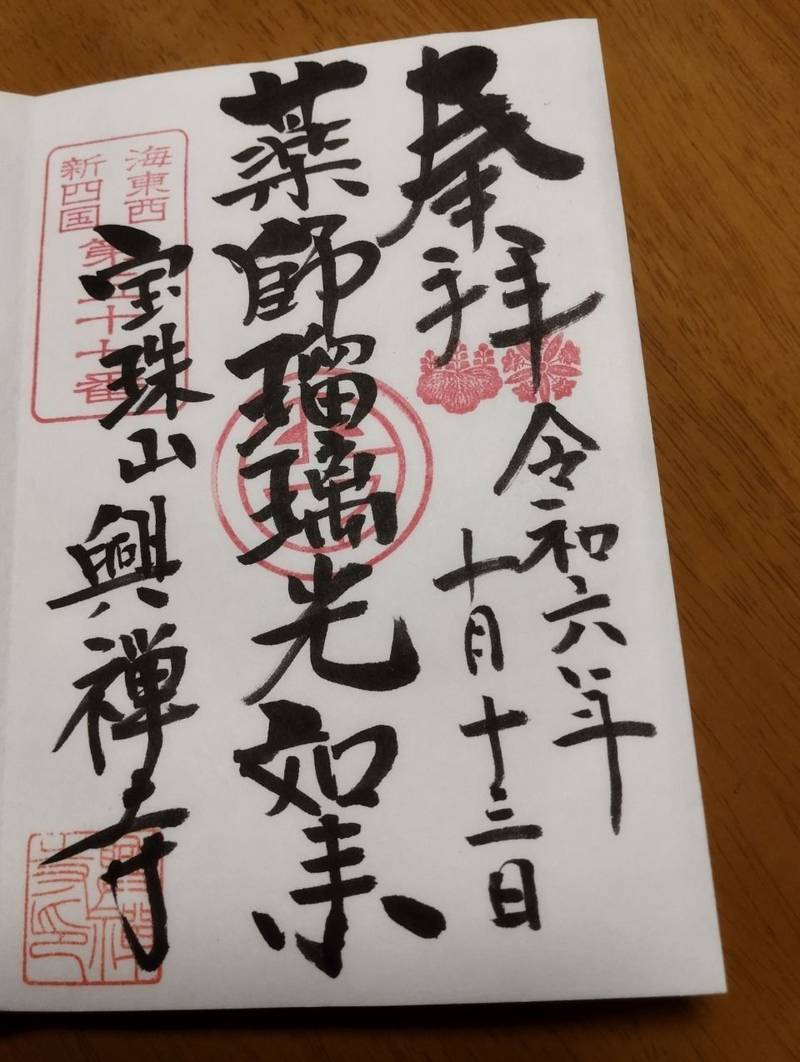 奉拝
令和六年
十月十三日
薬師瑠璃光如来
海東西
新四国
宝珠山
興禅寺